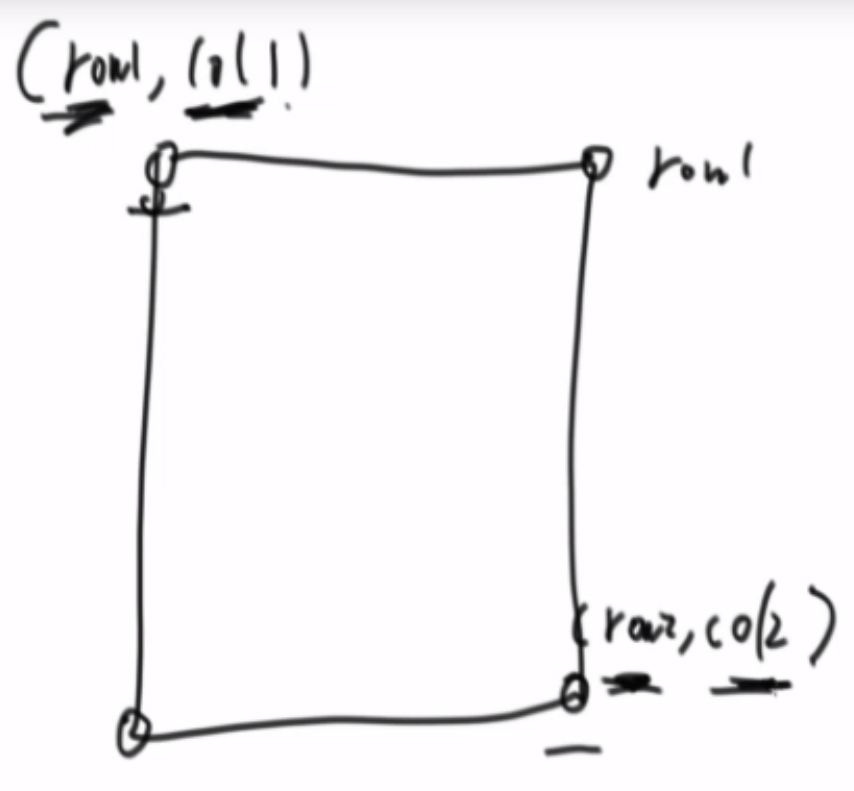 (row1, col1)
row1
(row2, col2)